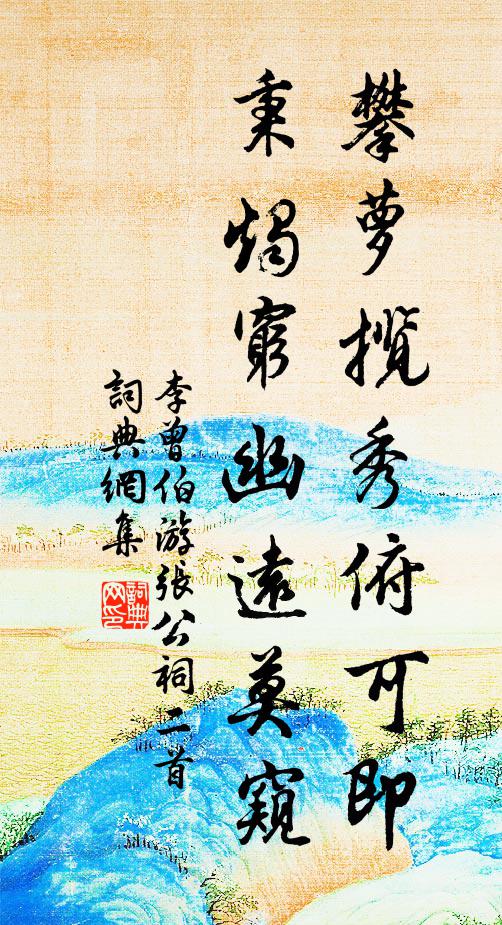 攀萝揽秀俯可即
秉燭窮幽遠莫窺
李曾伯游張公祠二首
詞典網集
詞典